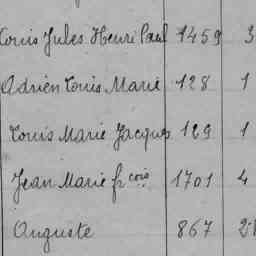 Louis Jules Henri Paul 1459 3
Adrien Louis Marie 128 1
Louis Marie Jacques 129 1
Jean Marie fr çois 1701 4
Auguste 867 2